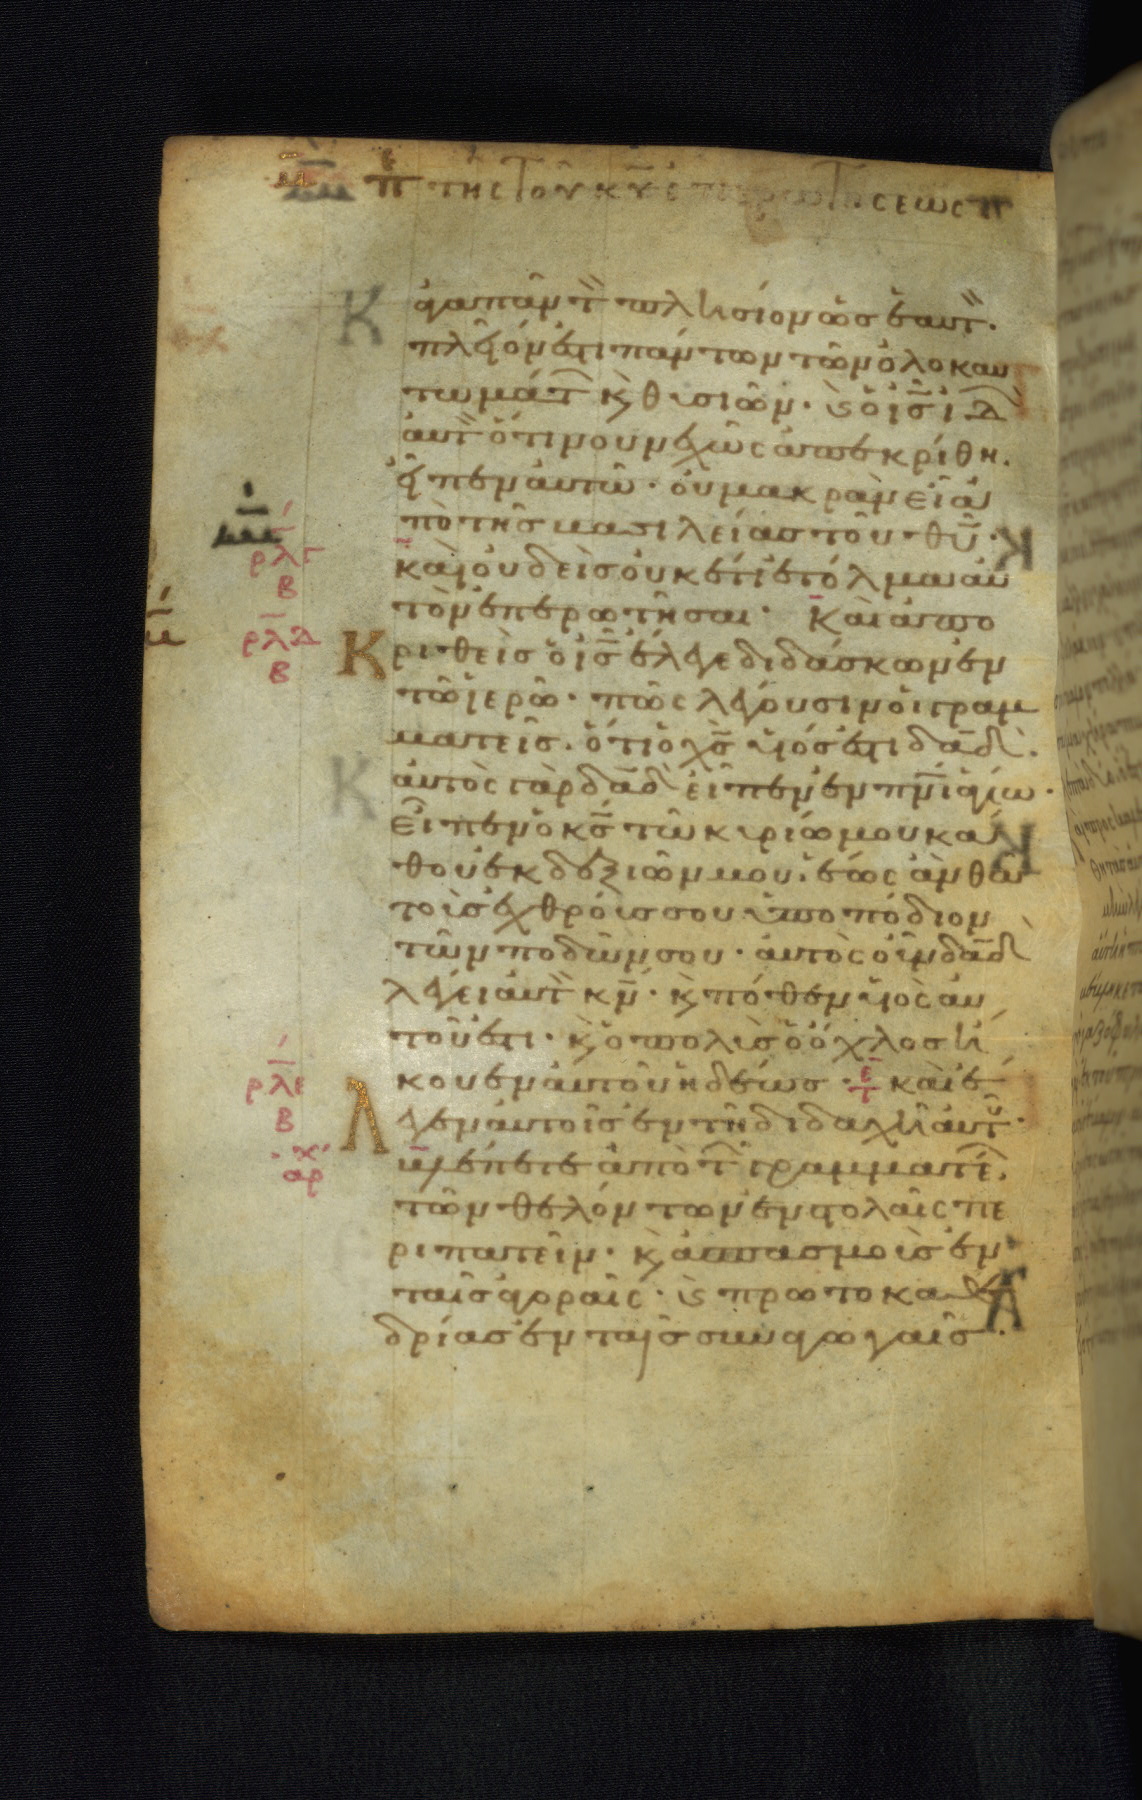 μα πε της τοῦ κυ ἐπερωτήσεως
ἀγαπᾶν τ πλησίον ὡς ἑαυτ.
πλεῖόν ἐστι πάντων τῶν ὁλοκαυ
τωμάτ κ θυσιῶν· κ ὁ ις ἰδ
αυτ ὅτι νουνεχῶς ἀπεκρίθη.
εἶπεν αὐτῶ· οὐ μακρὰν εἶ ἀ
πὸ τῆς βασιλείας τοῦ θυ·
καὶ οὐδεὶς οὐκέτι ἐτόλμα αὐ
τὸν ἐπερωτῆσαι· Καὶ ἀπο
ρλγ
β
ρλδ
β
κριθεὶς ὁ ις ἔλεγε διδάσκων ἐν
τῶ ἱερῶ· πῶς λέγουσιν οἱ γραμ
ματεῖς. ὅτι ὁ χς υἱός ἐστι δαδ.
αὐτὸς γὰρ δαδ εἶπεν ἐν πνι ἁγίω·
Εἶπεν ὁ κς τῶ κυρίω μου κά
θου ἐκ δεξιῶν μου. ἕως ἂν θῶ
τοὺς ἐχθρούς σου ὑποπόδιον
τῶν ποδῶν σου· αὐτὸς οὖν δαδ
λέγει αυτ κν· κ πόθεν υἱὸς αὐ
τοῦ ἐστι· κ ὁ πολὺς ὁ ὄχλος ἤ
κουεν αὐτοῦ ἡδέως· καὶ ἔ
ρλε
β
αρχ
λεγεν αὐτοῖς ἐν τῆ διδαχῆ αυτ·
βλέπετε ἀπὸ τ γραμματέ.
τῶν θελόντων ἐν στολαῖς πε
ριπατεῖν· κ ἀσπασμοὺς ἐν
ταῖς ἀγοραῖς· κ πρωτοκαθε
δρίας ἐν ταῖς συναγωγαῖς·